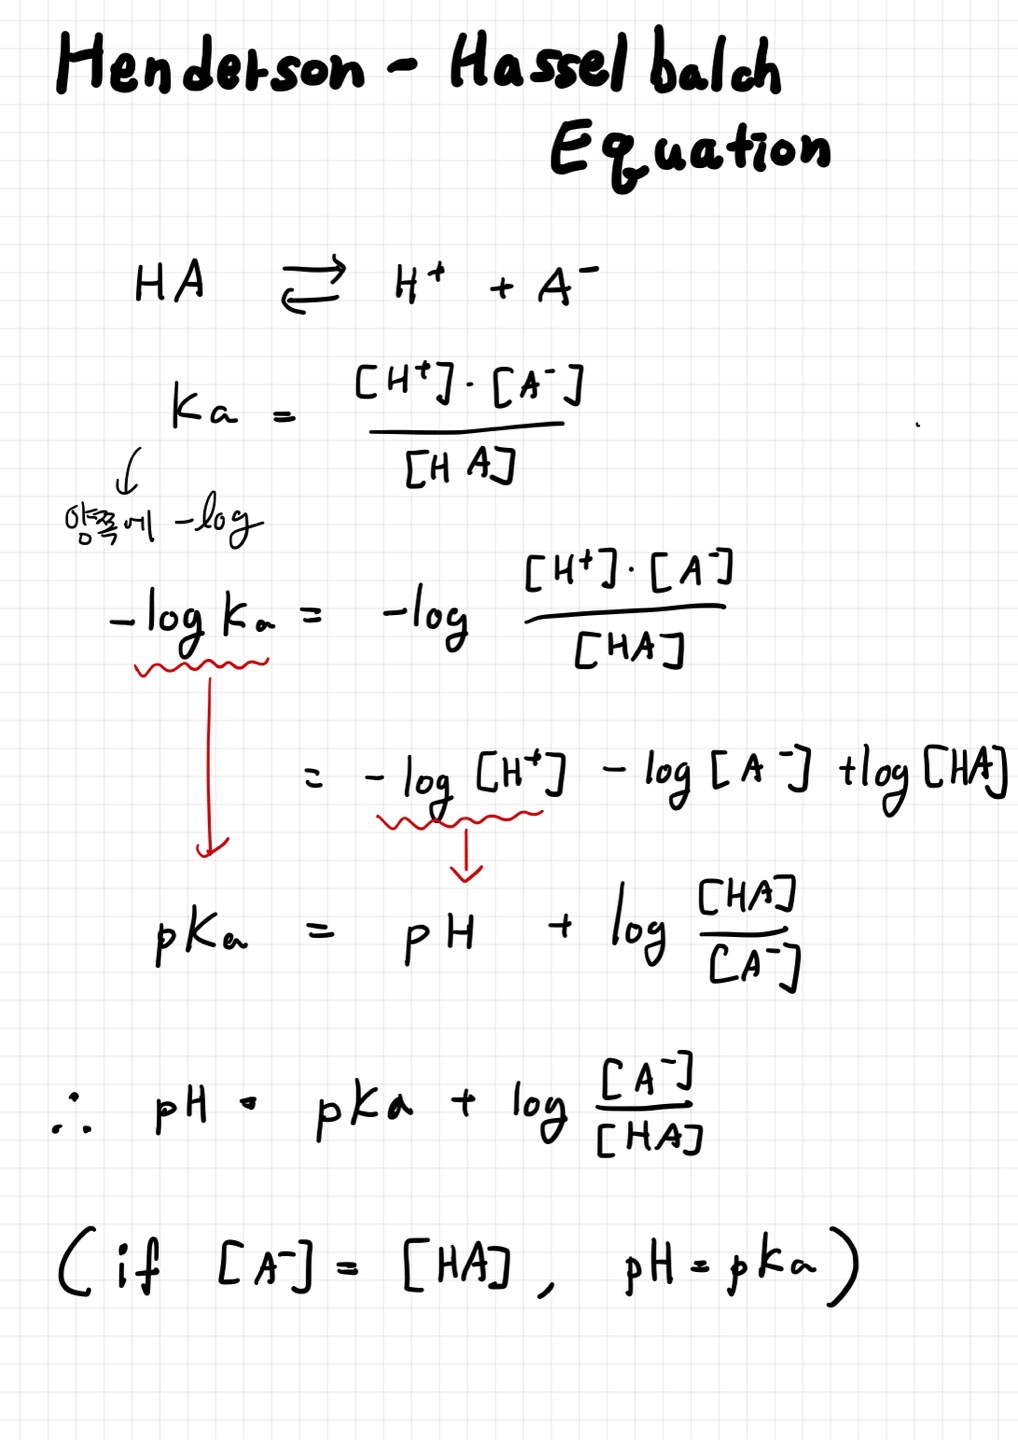 Henderson - Hasselbalch
Equation
HA ⇄ H⁺ + A⁻
Ka = [H⁺]·[A⁻] / [HA]
양쪽에 -log
-log Ka = -log [H⁺]·[A⁻] / [HA]
= -log [H⁺] - log [A⁻] + log [HA]
pKa = pH + log [HA] / [A⁻]
∴ pH = pKa + log [A⁻] / [HA]
(if [A⁻] = [HA], pH = pKa)